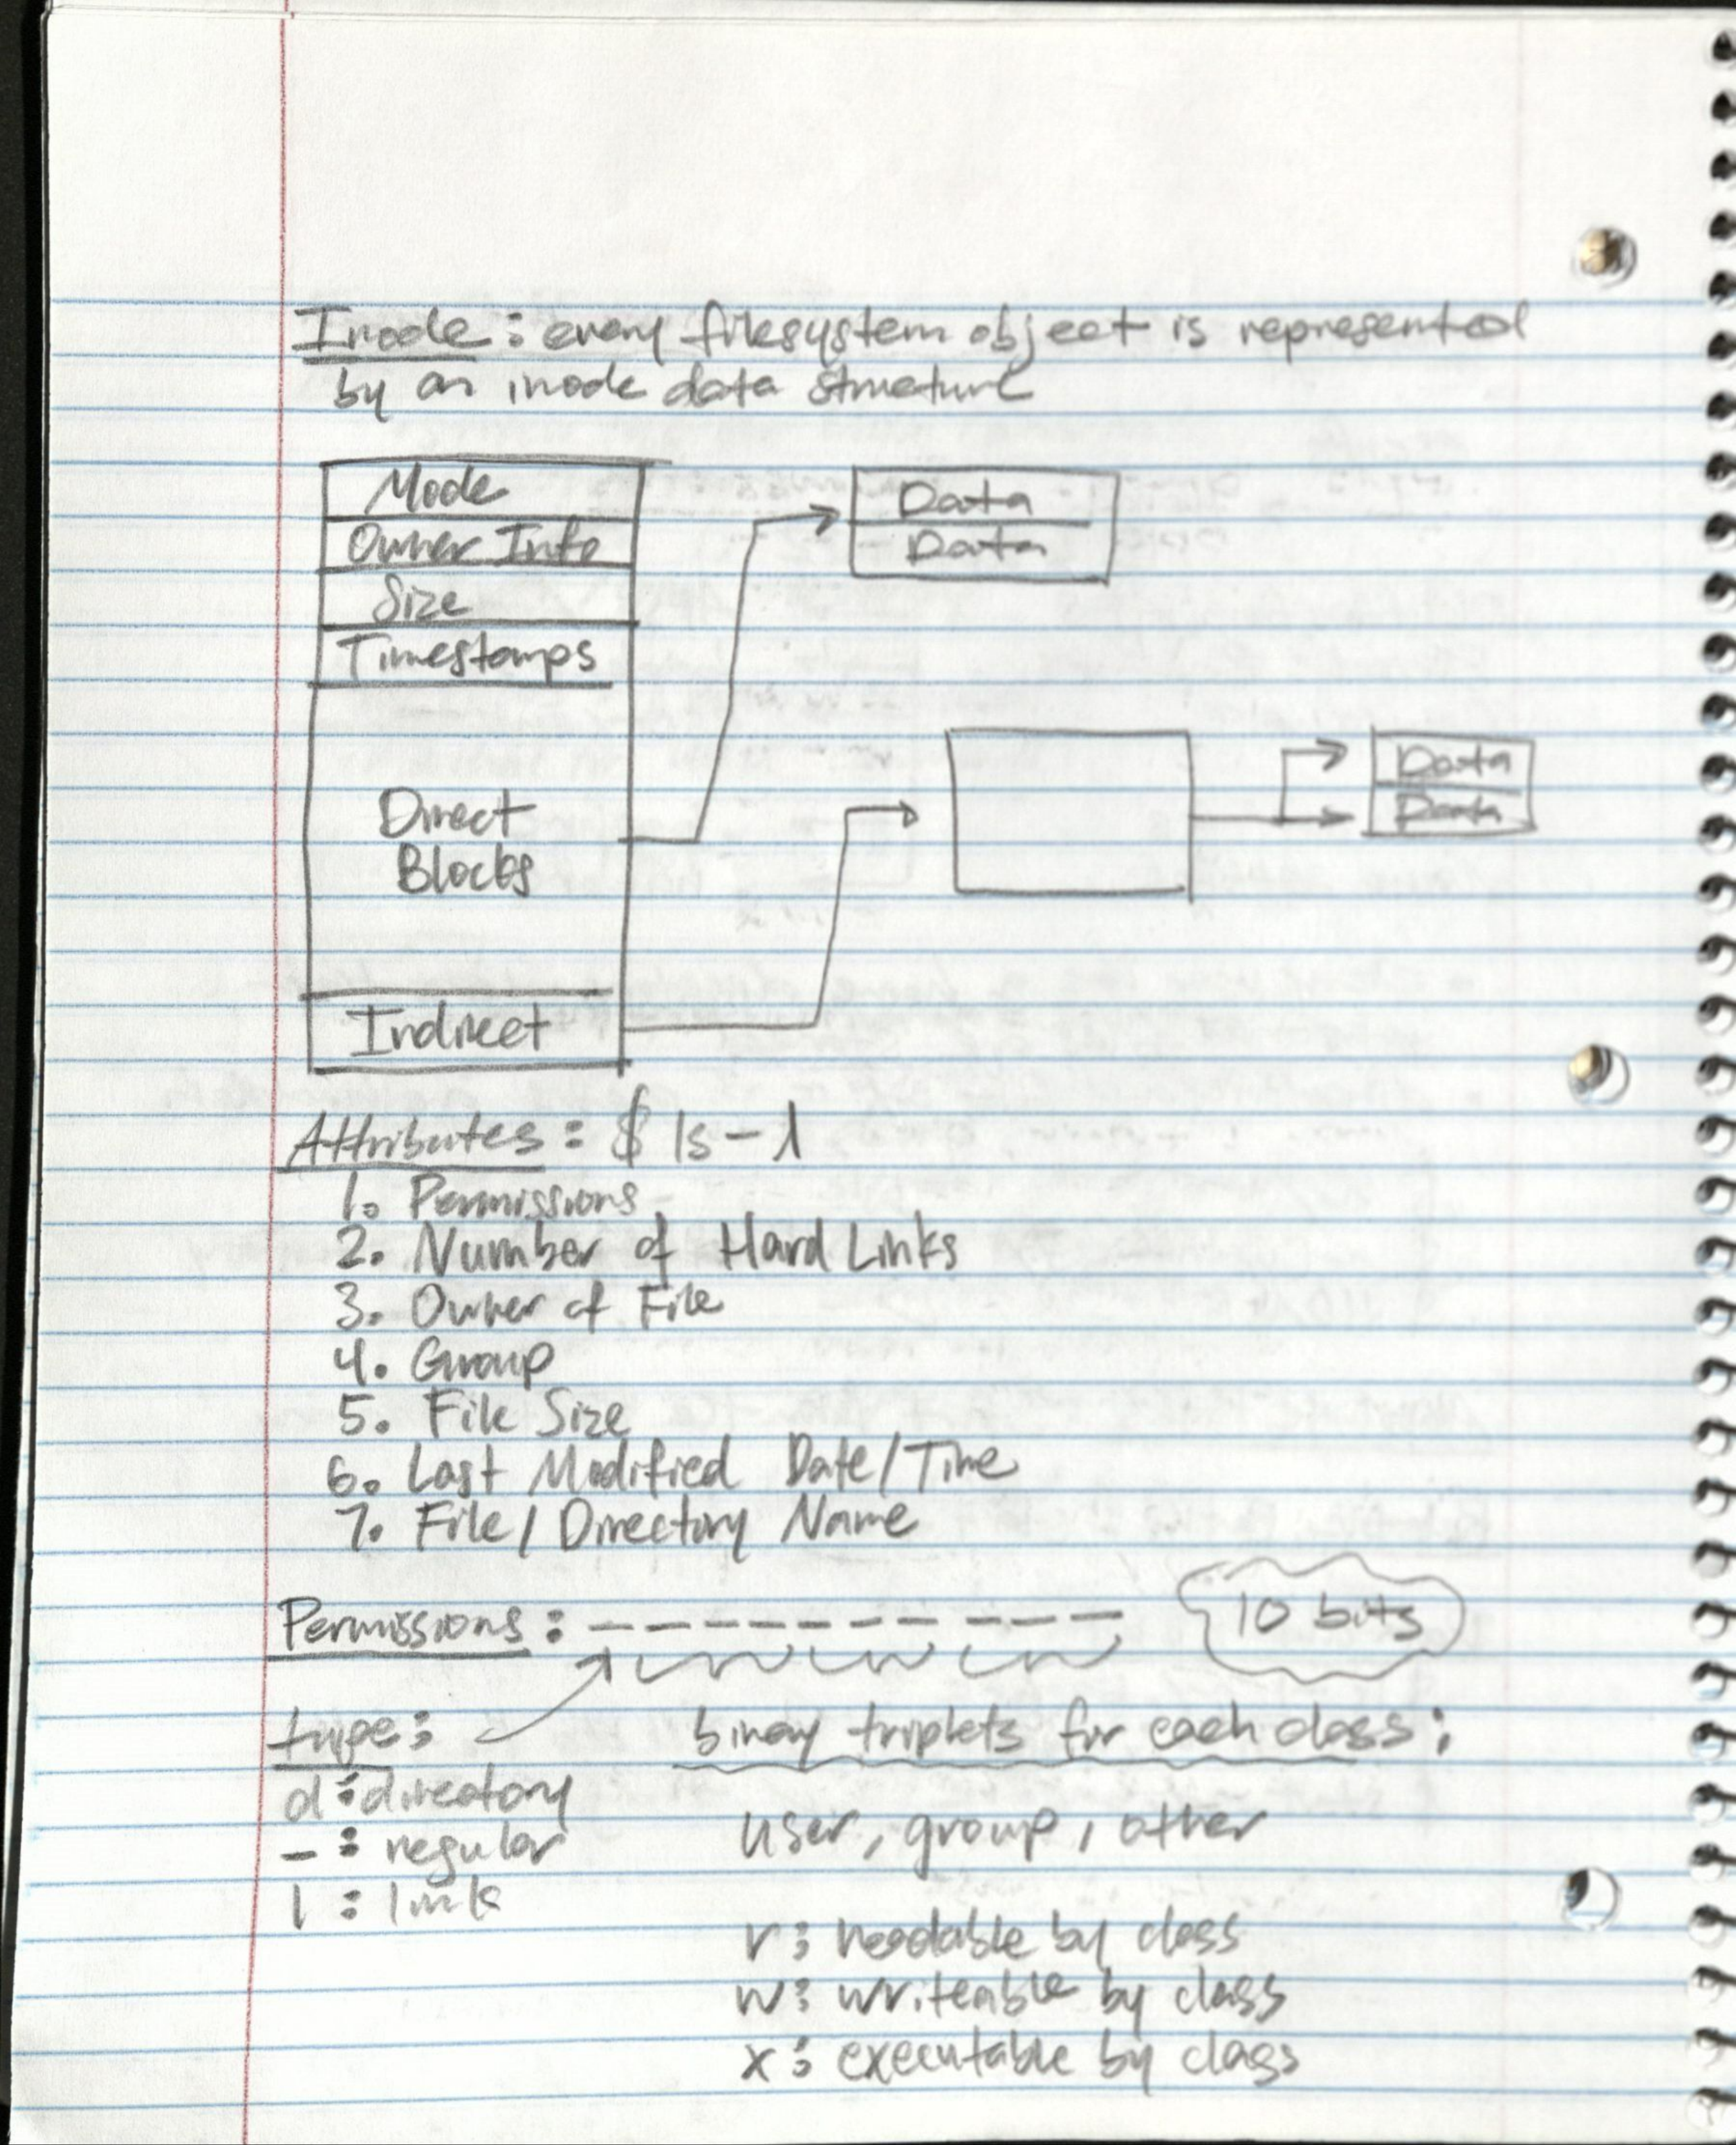 Inode: every filesystem object is represented
by an inode data structure
Mode
Owner Info
Size
Timestamps
Direct
Blocks
Indirect
Data
Data
Data
Data
Attributes: $ ls -l
1. Permissions
2. Number of Hard Links
3. Owner of File
4. Group
5. File Size
6. Last Modified Date/Time
7. File/Directory Name
Permissions: - - - - - - - - - -
10 bits
type:
d: directory
-: regular
l: link
binary triplets for each class:
user, group, other
r: readable by class
w: writeable by class
x: executable by class